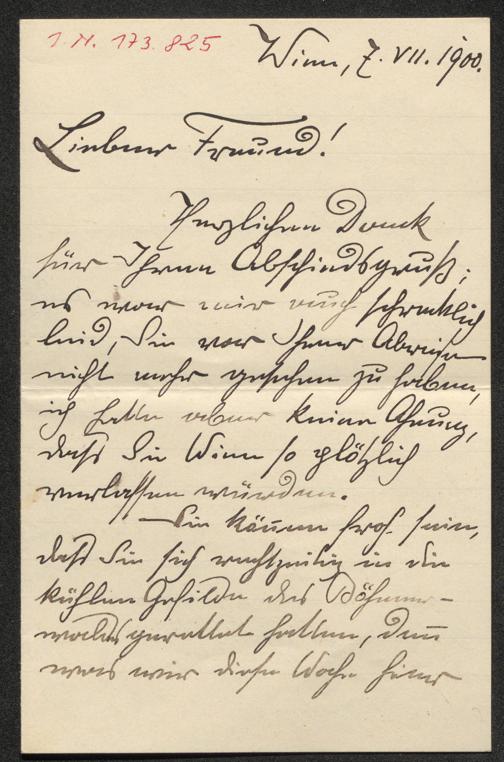 I.N. 173.825
Wien, 7. VII. 1900.
Lieber Freund!
Herzlichen Dank
für Ihren Abschiedsgruß;
es war mir auch schrecklich
leid, Sie vor Ihrer Abreise
nicht mehr gesehen zu haben,
ich hatte aber keine Ahnung,
daß Sie Wien so plötzlich
verlassen würden.
Sie können froh sein,
daß Sie sich rechtzeitig in die
kühlen Gefilde des Böhmer-
waldes gerettet hatten, denn
was wir diese Woche hier